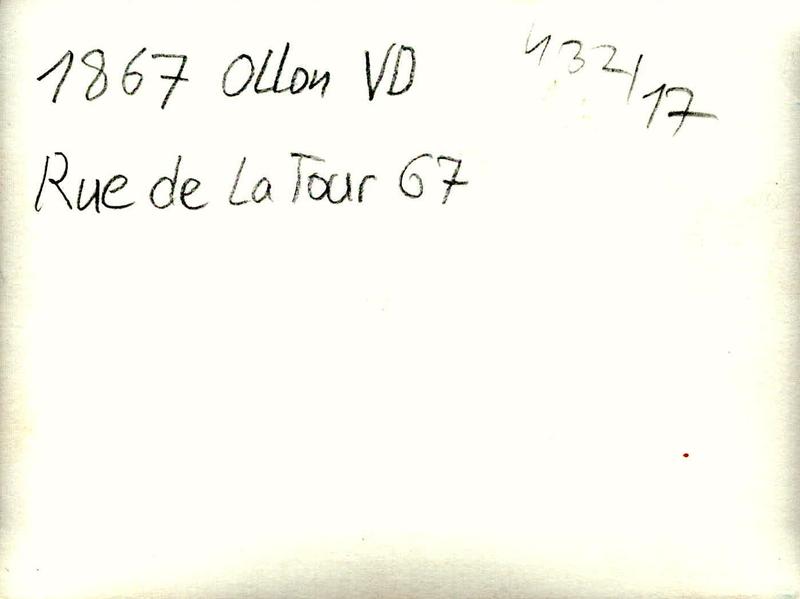 1867 Ollon VD
432/17
Rue de La Tour 67